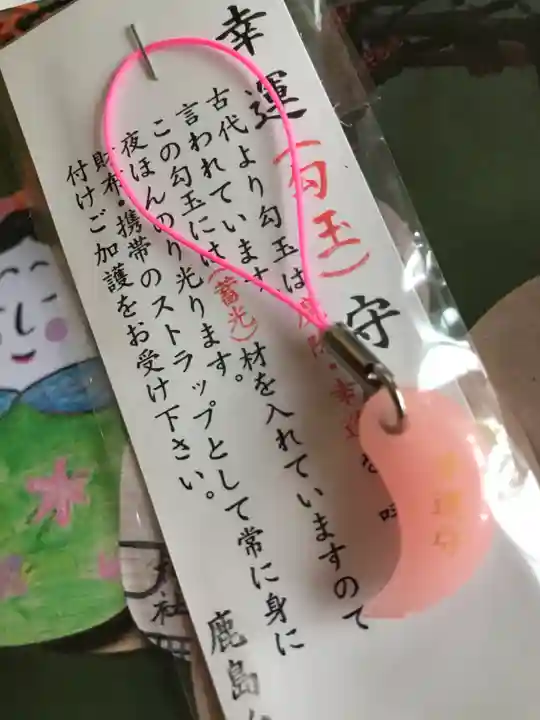 幸運(勾玉)守
古代より勾玉は
言われています
この勾玉には(蓄光)材を入れていますので
夜ほんのり光ります。
財布・携帯のストラップとして常に身に
付けご加護をお受け下さい。
鹿島
幸運守
社